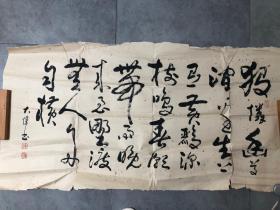 獨憐幽草
澗邊生上
有黃鸝深
樹鳴春潮
帶雨晚
來急野渡
無人舟
自橫